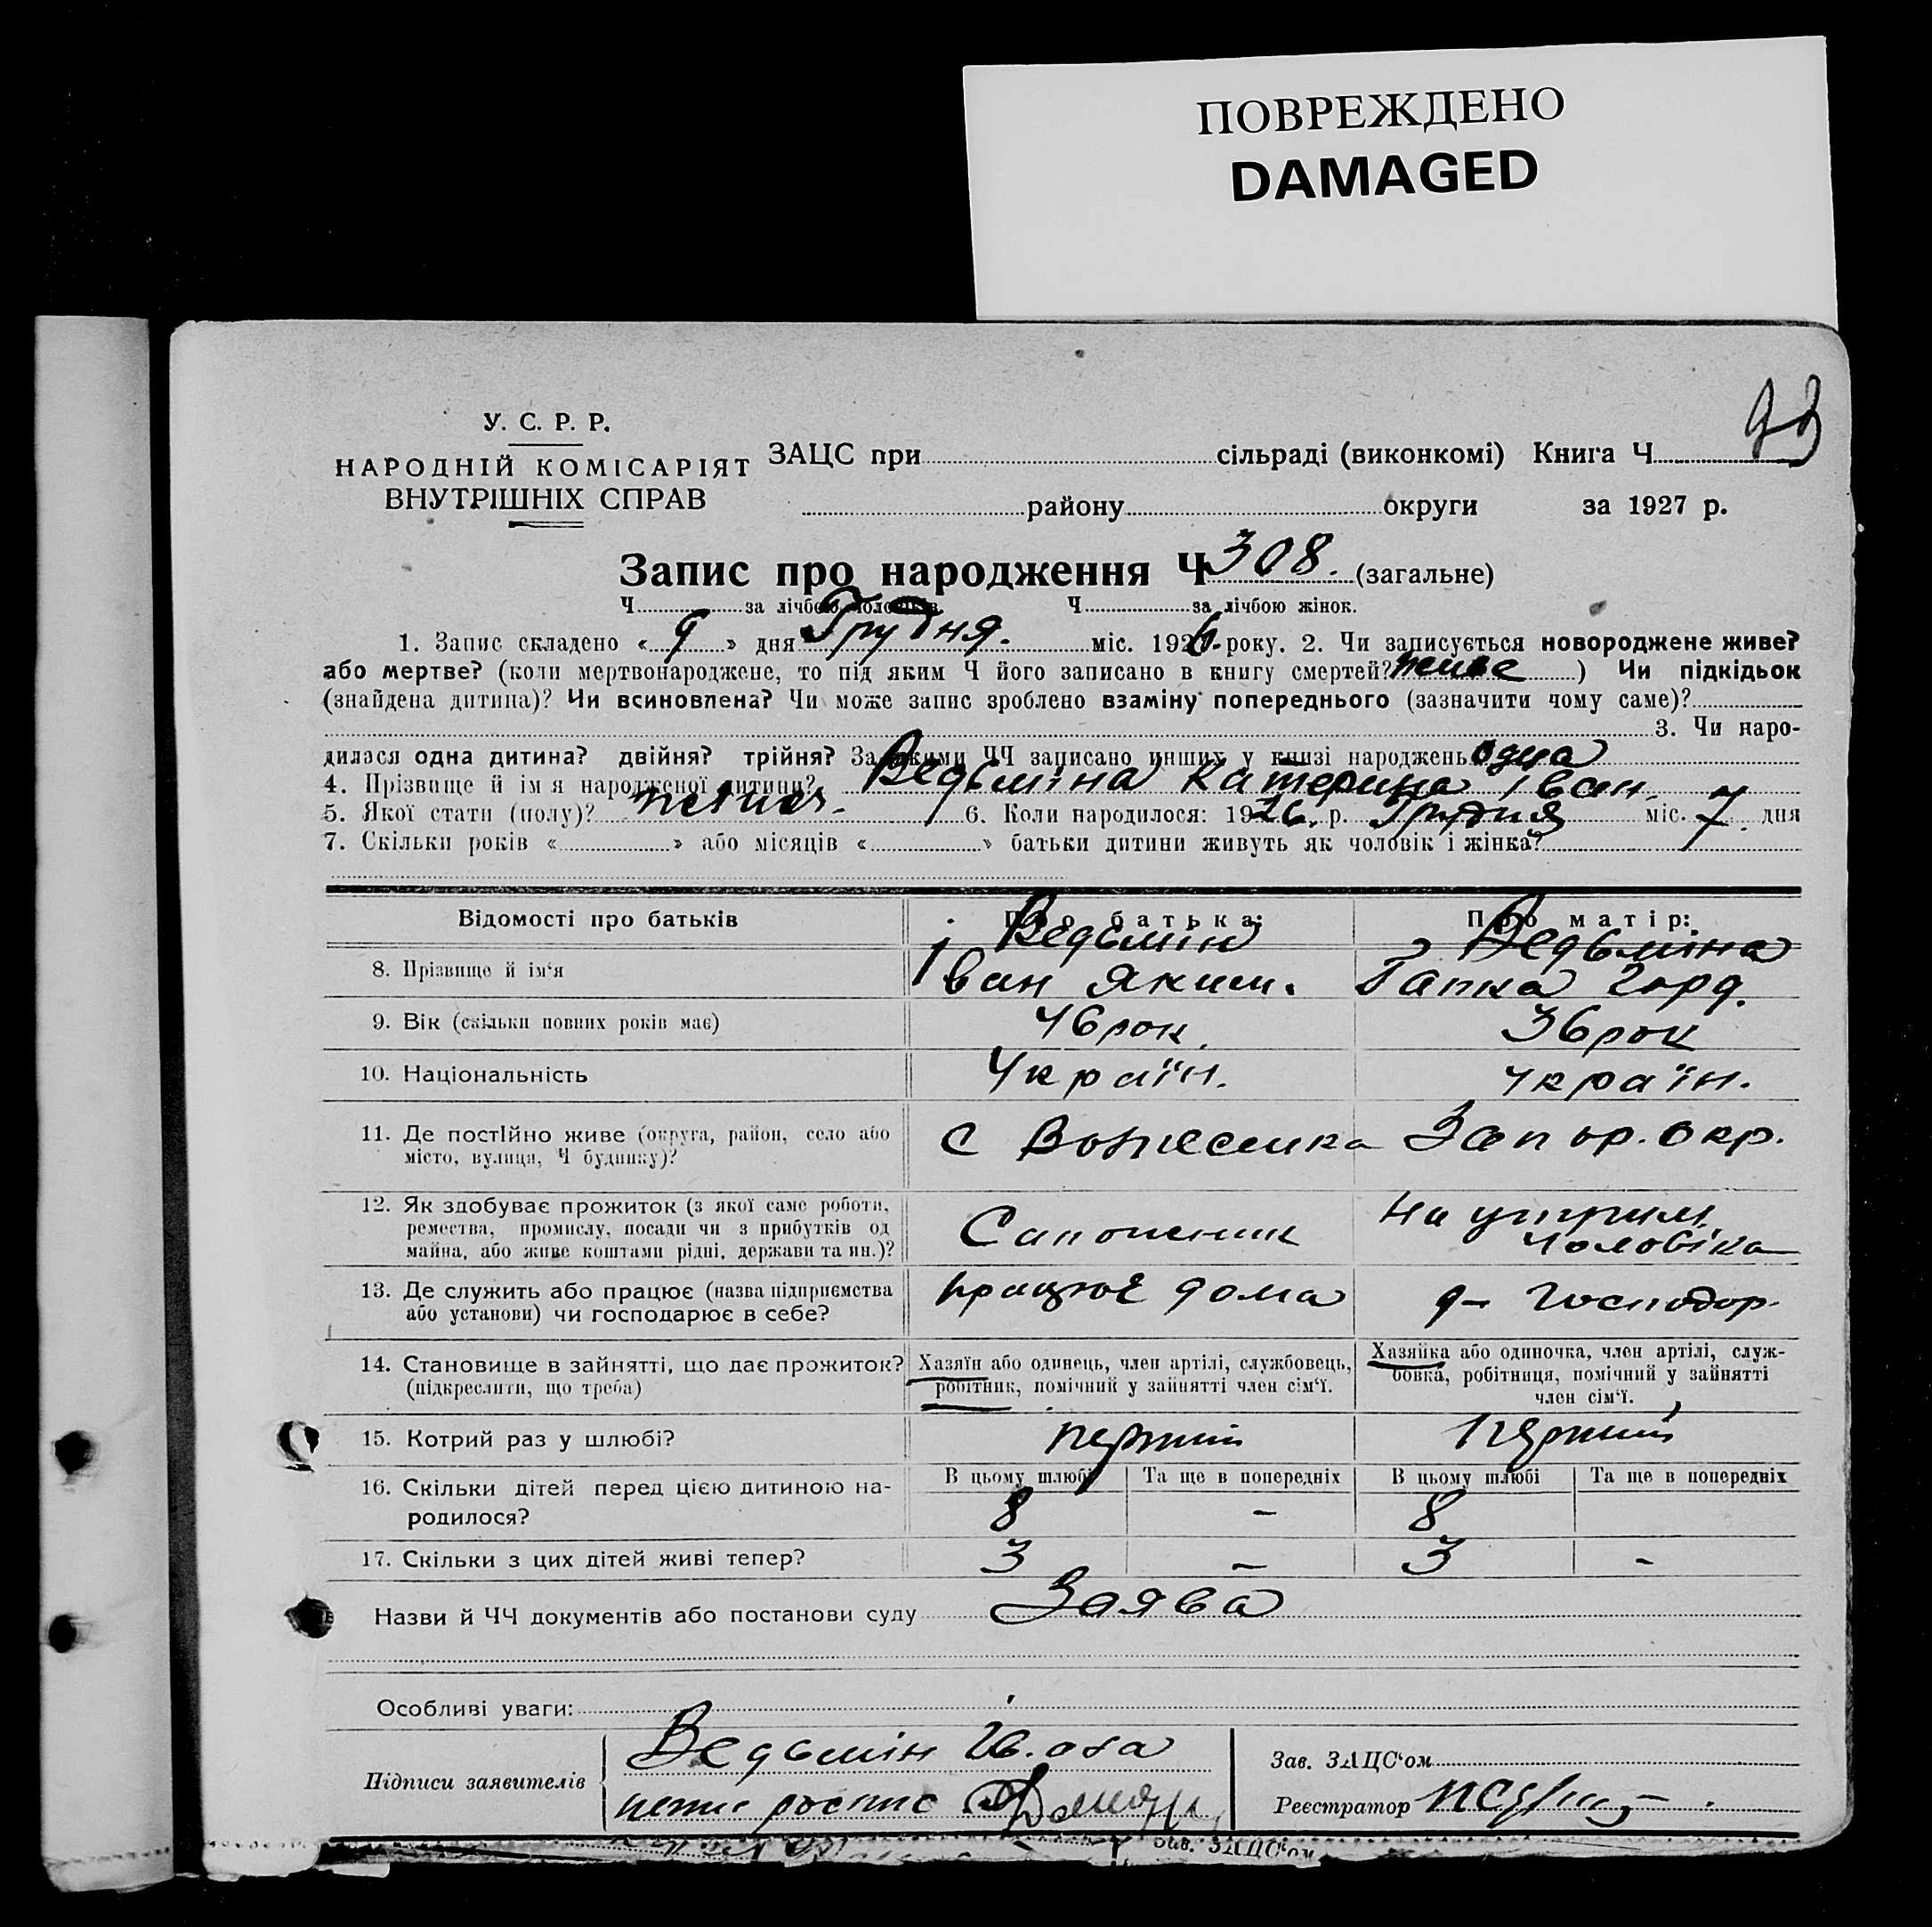 ПОВРЕЖДЕНО
DAMAGED
У. С. Р. Р.
НАРОДНІЙ КОМІСАРІЯТ
ВНУТРІШНІХ СПРАВ
ЗАЦС при сільраді (виконкомі) Книга Ч
району округи за 1927 р.
Запис про народження Ч 308. (загальне)
Ч за лічбою чоловіків Ч за лічбою жінок.
1. Запис складено « 9 » дня Грудня. міс. 1926 року. 2. Чи записується новороджене живе?
або мертве? (коли мертвонароджене, то під яким Ч його записано в книгу смертей? живе ) Чи підкідьок
(знайдена дитина)? Чи всиновлена? Чи може запис зроблено взаміну попереднього (зазначити чому саме)?
3. Чи наро-
дилася одна дитина? двійня? трійня? За якими ЧЧ записано инших у книзі народжень одна
4. Прізвище й ім'я народженої дитини? Ведьміна Катерина Іван.
5. Якої стати (полу)? жіноч. 6. Коли народилося: 1926. р. Грудня міс. 7 дня
7. Скільки років « » або місяців « » батьки дитини живуть як чоловік і жінка?
Відомості про батьків Про батька: Про матір:
Ведьмін Ведьміна
8. Прізвище й ім'я Іван Яким. Гапка Горд.
9. Вік (скільки повних років має) 46 рок. 36 рок
10. Національність Україн. Україн.
11. Де постійно живе (округа, район, село або С Вознесенка Запор. окр.
місто, вулиця, Ч будинку)?
12. Як здобуває прожиток (з якої саме роботи, На утрим.
ремества, промислу, посади чи з прибутків од Сапожник чоловіка
майна, або живе коштами рідні, держави та ин.)?
13. Де служить або працює (назва підприємства працює дома д- Господар.
або установи) чи господарює в себе?
14. Становище в зайнятті, що дає прожиток? Хазяїн або одинець, член артілі, службовець, Хазяйка або одиночка, член артілі, служ-
(підкреслити, що треба) робітник, помічний у зайнятті член сім'ї. бовка, робітниця, помічний у зайнятті
член сім'ї.
15. Котрий раз у шлюбі? перший перший
В цьому шлюбі Та ще в попередніх В цьому шлюбі Та ще в попередніх
16. Скільки дітей перед цією дитиною на-
родилося? 8 - 8
17. Скільки з цих дітей живі тепер? 3 - 3 -
Назви й ЧЧ документів або постанови суду Заява
Особливі уваги:
Ведьмін Ів. Зав. ЗАЦС'ом
Підписи заявителів
Реєстратор
Зав. ЗАЦС'ом